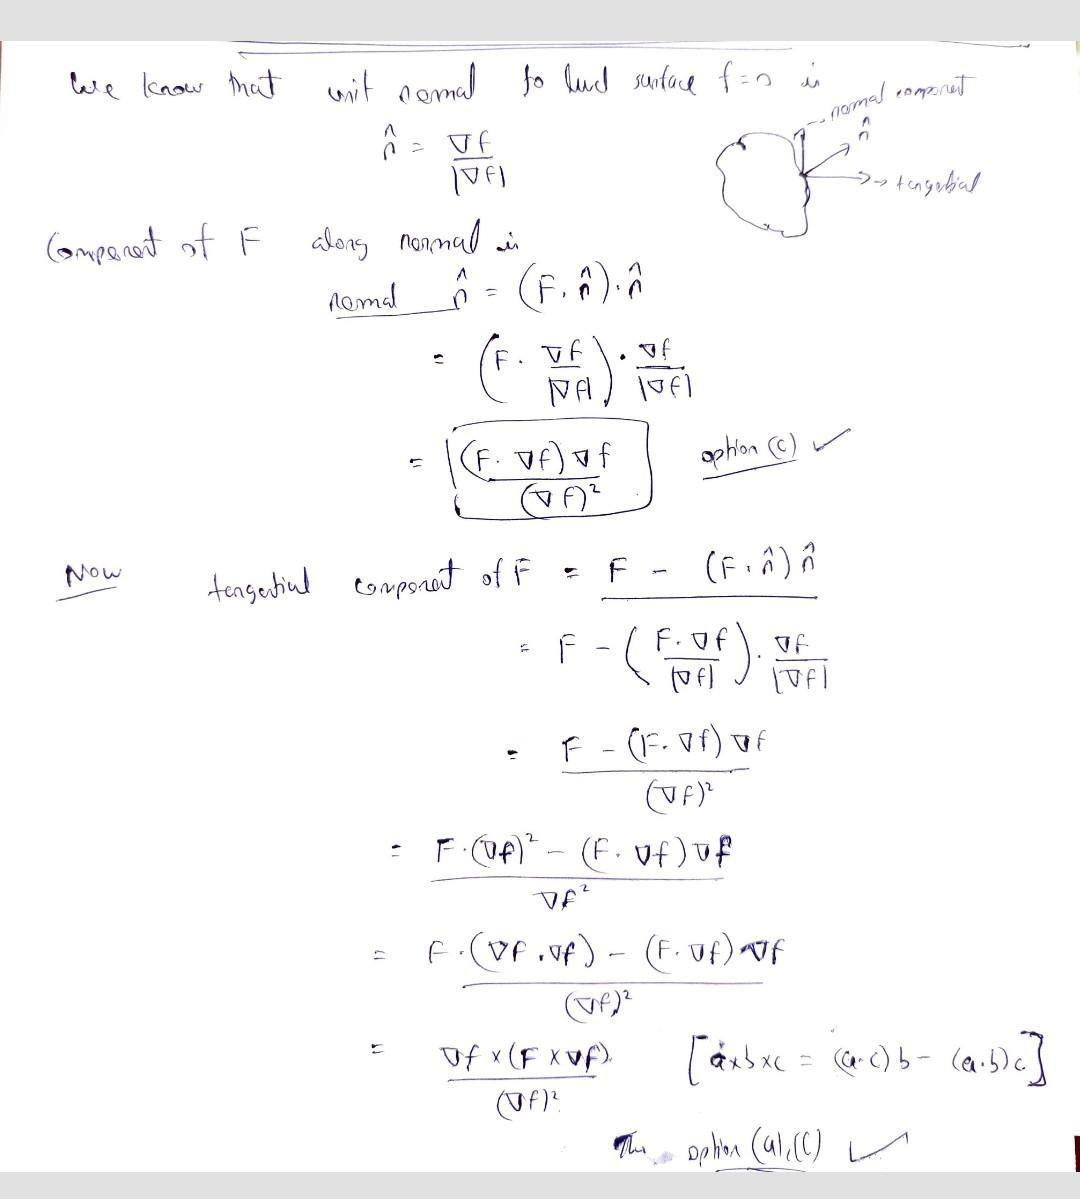 We know that unit normal to level surface f=0 is
n̂ = ∇f / |∇f|
normal component
n̂
tangential
Component of F along normal is
normal n̂ = (F. n̂).n̂
= (F. ∇f / |∇f|) . ∇f / |∇f|
= (F. ∇f) ∇f / (∇f)² option (c) ✓
Now tangential component of F = F - (F.n̂) n̂
= F - (F.∇f / |∇f|) . ∇f / |∇f|
= F - (F.∇f) ∇f / (∇f)²
= F.(∇f)² - (F. ∇f) ∇f / ∇f²
= F.(∇f .∇f) - (F. ∇f) ∇f / (∇f)²
= ∇f x (F x ∇f) / (∇f)² [axbxc = (a.c) b - (a.b) c]
option (a),(c) ✓